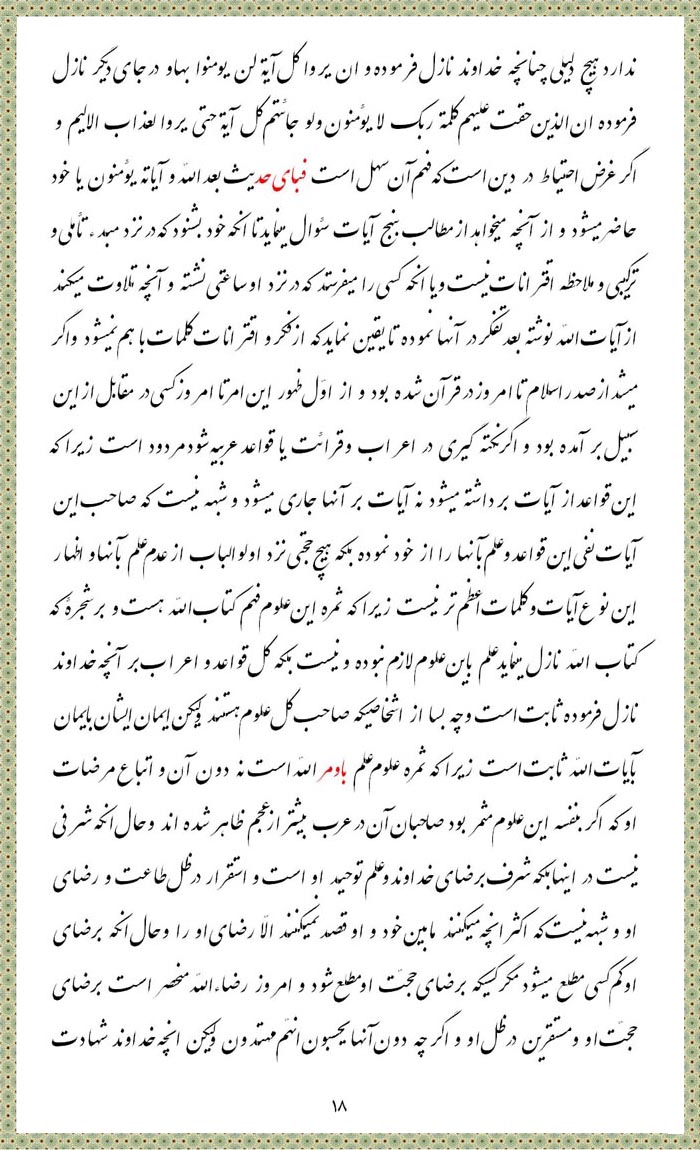 ندارد هیچ دلیلی چنانچه خداوند نازل فرموده و ان یروا کل آیة لن یومنوا بها و در جای دیگر نازل
فرموده ان الذین حقت علیهم کلمة ربک لا یؤمنون ولو جائتهم کل آیة حتی یروا العذاب الالیم و
اگر غرض احتیاط در دین است که فهم آن سهل است فبای حدیث بعد الله و آیاتة یؤمنون یا خود
حاضر میشود و از آنچه میخواهد از مطالب بنهج آیات سئوال مینماید تا انکه خود بشنود که در نزد مبدء تأملی و
ترکیبی و ملاحظه اقترانات نیست و یا انکه کسی را میفرستد که در نزد او ساعتی نشسته و آنچه تلاوت میکند
از آیات الله نوشته بعد تفکر در آنها نموده تا یقین نماید که از فکر و اقترانات کلمات با هم نمیشود واگر
میشد از صدر اسلام تا امروز در قرآن شده بود و از اوّل ظهور این امر تا امروز کسی در مقابل از این
سبیل بر آمده بود و اگر نکته گیری در اعراب وقرائت یا قواعد عربیه شود مردود است زیرا که
این قواعد از آیات برداشته میشود نه آیات بر آنها جاری میشود و شبهه نیست که صاحب این
آیات نفی این قواعد وعلم بآنها را از خود نموده بلکه هیچ حجتی نزد اولوالباب از عدم علم بآنها و اظهار
این نوع آیات و کلمات اعظم تر نیست زیرا که ثمره این علوم فهم کتاب الله هست و بر شجرۀ که
کتاب الله نازل مینماید علم باین علوم لازم نبوده و نیست بلکه کل قواعد و اعراب بر آنچه خداوند
نازل فرموده ثابت است وچه بسا از اشخاصیکه صاحب کل علوم هستند ولیکن ایمان ایشان بایمان
بآیات الله ثابت است زیرا که ثمره علوم علم باومر الله است نه دون آن و اتباع مرضات
او که اگر بنفسه این علوم مثمر بود صاحبان آن در عرب بیشتر از عجم ظاهر شده اند وحال انکه شرفی
نیست در اینها بلکه شرف برضای خداوند وعلم توحید او است و استقرار در ظل طاعت و رضای
او و شبهه نیست که اکثر انچه میکنند مابین خود و او قصد نمیکنند الّا رضای او را وحال انکه برضای
او کم کسی مطلع میشود مگر کسیکه برضای حجّت او مطلع شود و امروز رضاءالله منحصر است برضای
حجّت او ومستقرین در ظل او و اگر چه دون آنها یحسبون انهّم مهتدون ولیکن انچه خداوند شهادت
۱۸